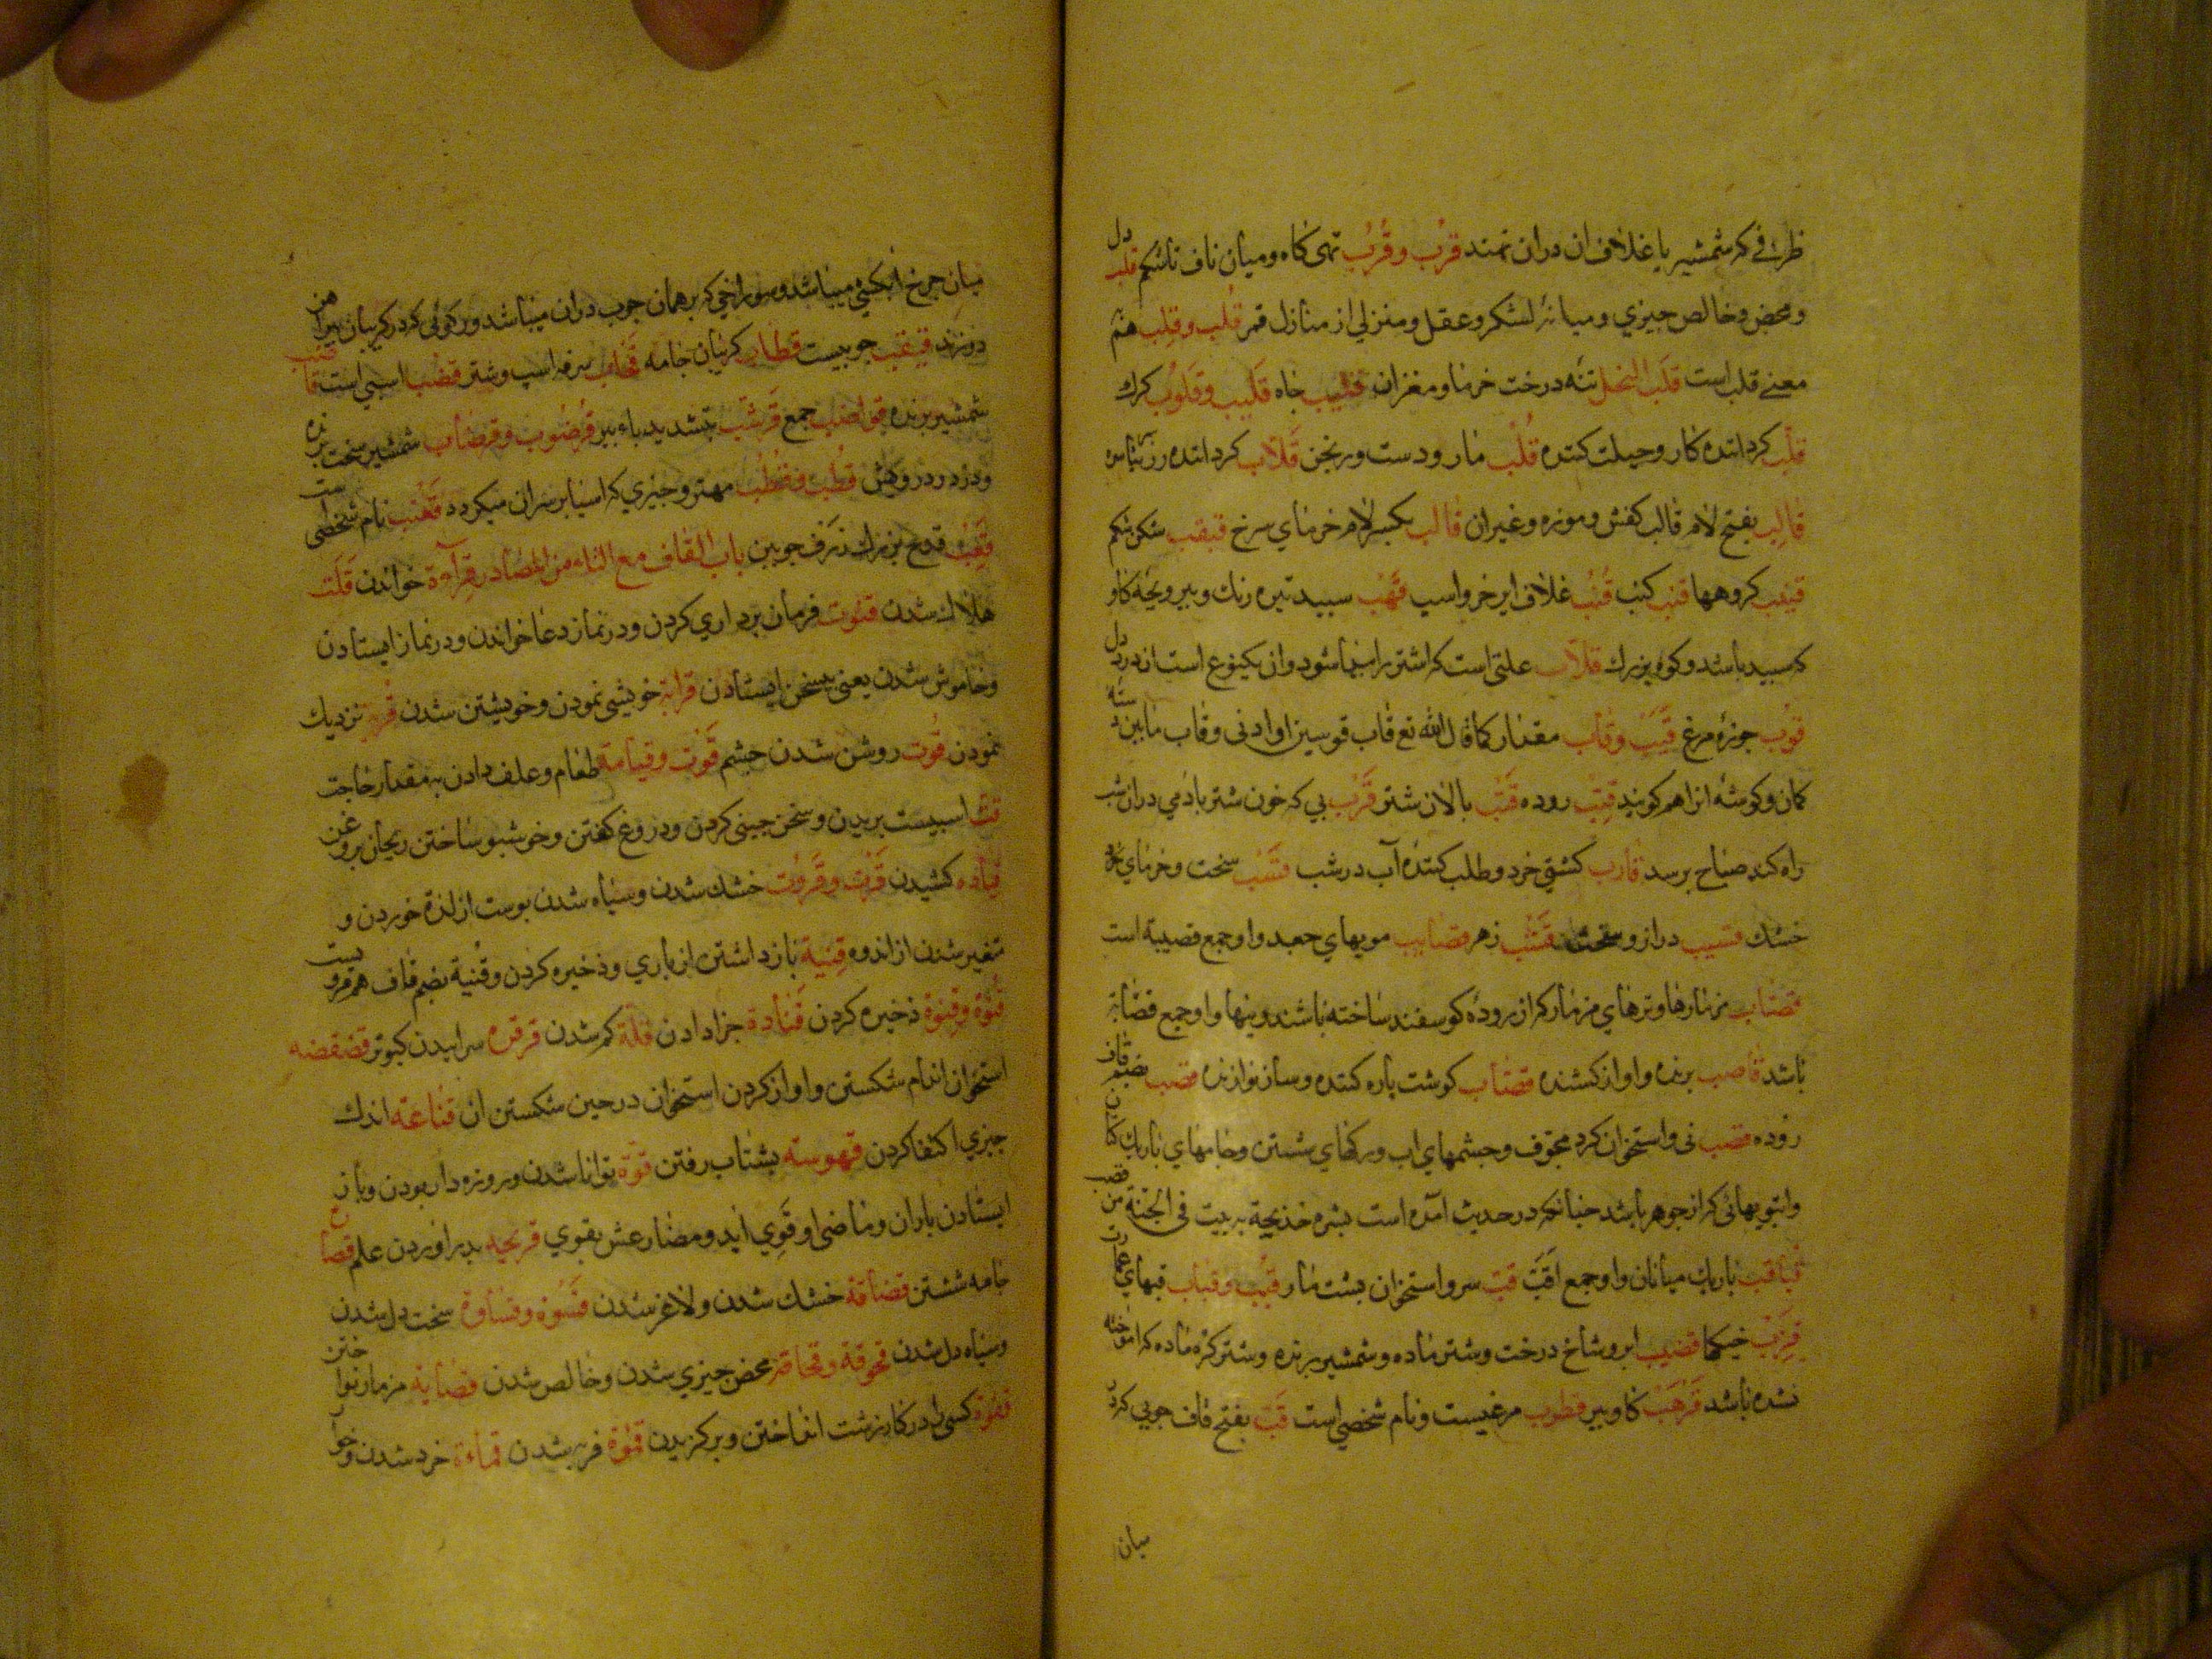 ظرفی که شمشیر با غلاف ان دران نهند قرب و قُرُب تهی کاه و میان ناف تا شکم قلب دل
و محض و خالص چیزی و میانهٔ لشکر و عقل و منزلی از منازل قمر قُلب و قِلب هم
معنی قلب است قلب النخل تنه درخت خرما و مغزان قلیب جاه قلیب و قلوب کرك
قلّب کرداننده کار و حیلت کننده قُلب مار و دست ورنجن قلّاب کرداننده
قالب بفتح لام قالب کفش و موزه و غیران قالب بکسر لام خرمای سرخ قبقب شکن شکم
کروهها قنب کنب قُنب غلاف ایر خر و اسپ قهب سبید تیره رنك و بیر و بچهٔ کاو
که سبید باشد و کوه بزرك قلاب علتی است که اشتر را میباشود وان یکنوع است از درد دل
قوب جوزهٔ مرغ قیب و قاب مقدار کما قال الله تع قاب قوسین او ادنی و قاب مابین
کمان و کوشه انرا هم کویند قتب روده قتب بالان شتر قرب بی که خون شتر بادمی دران شب
راه کند صباح برسد قارب کشتی خرد و طلب کننده آب در شب قسب سخت و خرمای
خشك قسیب دراز و سخت قشب زهر قصایب مویهای جعد و او جمع قصیبة است
قصاب مزمارها و ترهای مزمار که از رودهٔ کوسفند ساخته باشند و او جمع قصابة
باشد قاصب برنده و اواز کشنده قصاب کوشت باره کننده و ساز نوازنده قصب بضم قاف
روده قصب نی و استخوان کرد مجوف و جشمهای اب و رکهای شستن و جامهای باریك کتان
وانبوبهائی که از جوهر باشد جنانکه در حدیث آمده است بشره خذیجة ببیت فی الجنة من قصب
باریك میانان و او جمع اقب قب سر و استخوان بشت مار قبب و قباب قبهای عمارت
ابر و شاخ درخت و شتر ماده و شمشیر برنده و شتر کره ماده که اموخته
نشده باشد قرهب کاو بیر قطرب مرغیست و نام شخصی است قب بفتح قاف جوبی کرد
میان
میان جرخ ابکشی میباشد و سوراخی که برهمان جوب دران میباشد و رکوئی که در کریبان بیراهن
دوزند قیقب جوبیست قطاب کریبان جامه قحاب سرفه اسپ و شتر قضب اسبی است
شمشیر برنده قواضب جمع قرشب بتشدید باء بیر قرضوب و قرضاب شمشیر سخت برنده
و دزد و درویش قطب و قطُب مهتر و جیزی که اسیا بر سران میکردد قعنب نام شخصی است
قعب قدح بزرك ژرف جوبین باب القاف مع التاء من المصادر قرآءة خواندن قلت
هلاك شدن قنوت فرمان برداری کردن و در نماز دعا خواندن و در نماز ایستادن
و خاموش شدن یعنی بیسخن ایستادن قرابة خویشی نمودن و خویشتن شدن قربة نزدیك
نمودن قوت روشن شدن جشم قوت و قیامة طعام و علف دادن بمقدار حاجت
قت اسبیست بریدن و سخن جینی کردن و دروغ کفتن و خوشبو ساختن ریحان بروغن
قیاده کشیدن قرت و قروت خشك شدن و سیاه شدن بوست از لذة خوردن و
متغیر شدن از اندوه قنیة باز داشتن از یاری و ذخیره کردن و قنیة بضم قاف هم مرویست
قنوة و قنوة ذخیره کردن قنادة جزا دادن قلة کم شدن قرقره سراییدن کبوتر قضقضه
استخوان اندام شکستن و اواز کردن استخوان در حین شکستن ان قناعة اندك
جیزی اکتفا کردن قهوسته بشتاب رفتن قوة توانا شدن و روزه دار بودن و باز
ایستادن باران و ماضی او قوی اید و مضارعش یقوی قریحة بدر اوردن علم
جامه شستن قضافة خشك شدن و لاغر شدن قسوه و قساوة سخت دل شدن
و سیاه دل شدن قحوفة و قحافة محض جیزی شدن و خالص شدن قصابة مزمار نواختن
قفوة کسی را در کار زشت انداختن و برکزیدن قموة فربه شدن قماءة خرد شدن و خوار